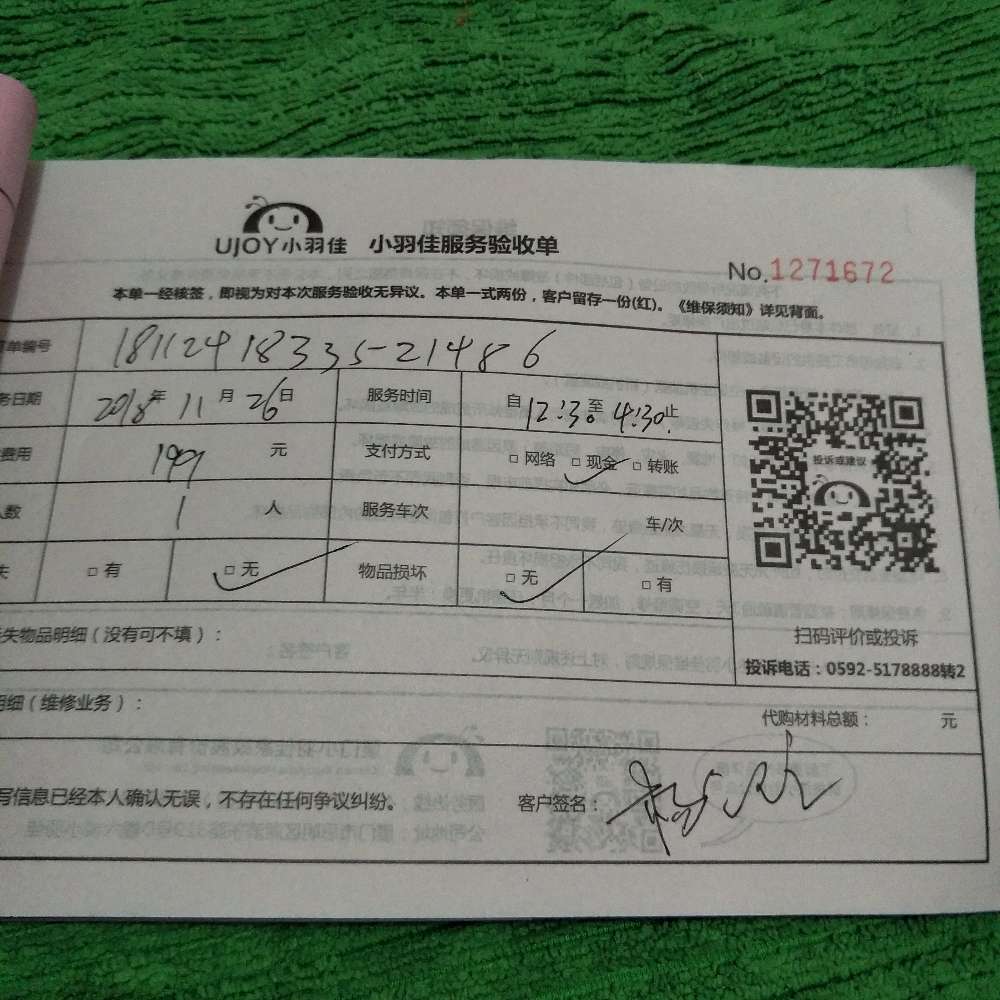 UJOY小羽佳 小羽佳服务验收单
No.1271672
本单一经核签，即视为对本次服务验收无异议。本单一式两份，客户留存一份(红)。《维保须知》详见背面。
单编号 18112418335-21486
务日期 2018年 11月 26日 服务时间 自12:30至4:30止
费用 199 元 支付方式 □网络 □现金 □转账
人数 1 人 服务车次 车/次
失 □有 □无 物品损坏 □无 □有
投诉或建议
扫码评价或投诉
投诉电话：0592-5178888转2
失物品明细（没有可不填）：
明细（维修业务）： 代购材料总额： 元
写信息已经本人确认无误，不存在任何争议纠纷。 客户签名：